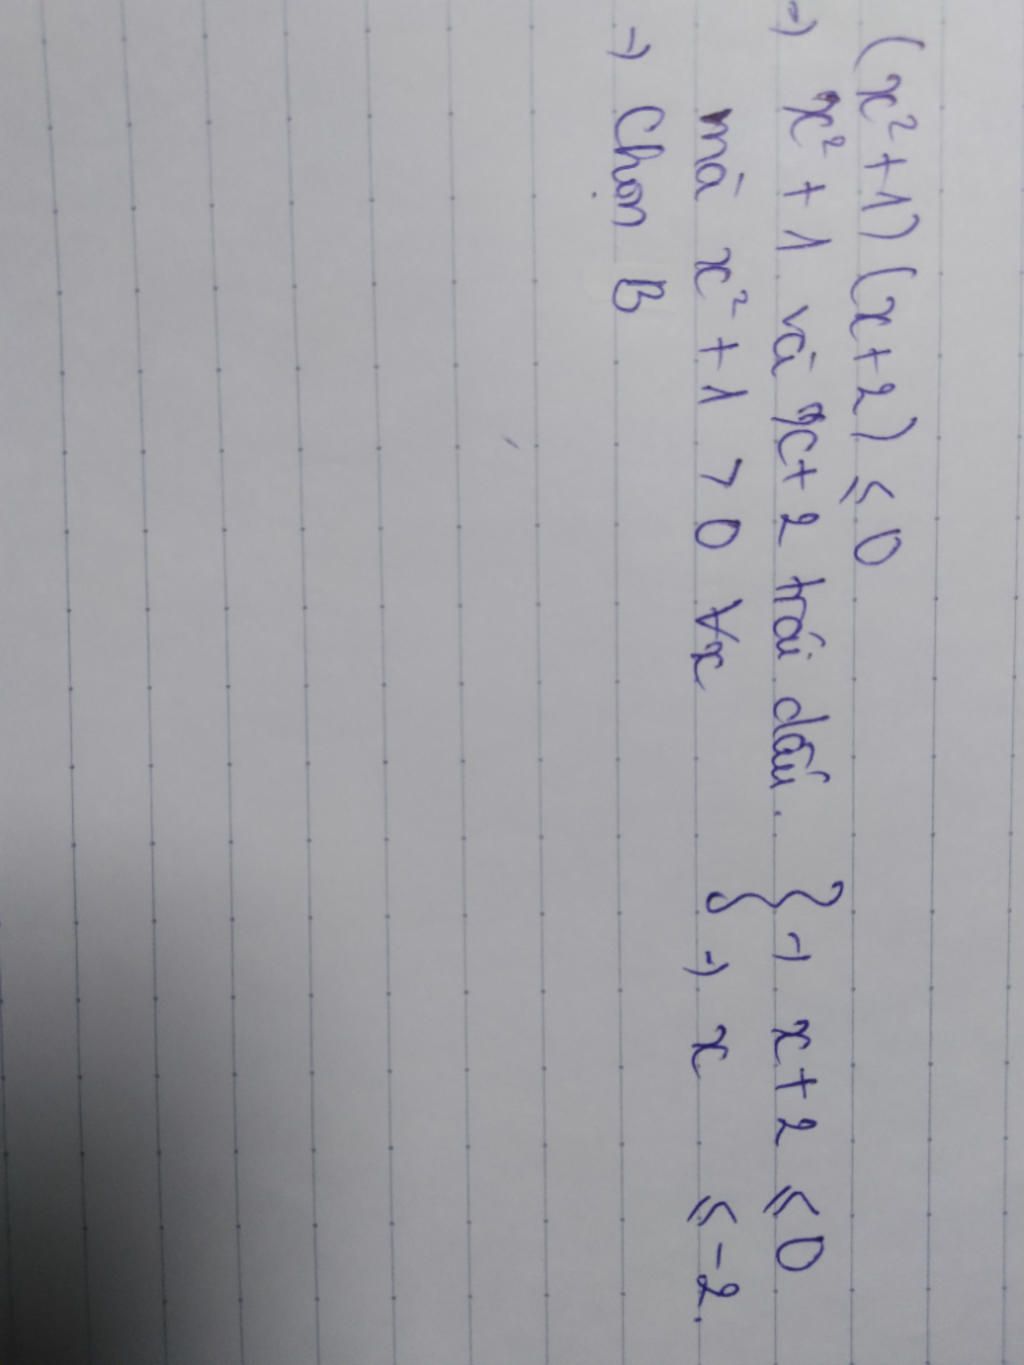 (x²+1)(x+2) ≤ 0
→ x²+1 và x+2 trái dấu. } → x+2 ≤ 0
mà x²+1 > 0 ∀x } → x ≤ -2.
→ Chọn B